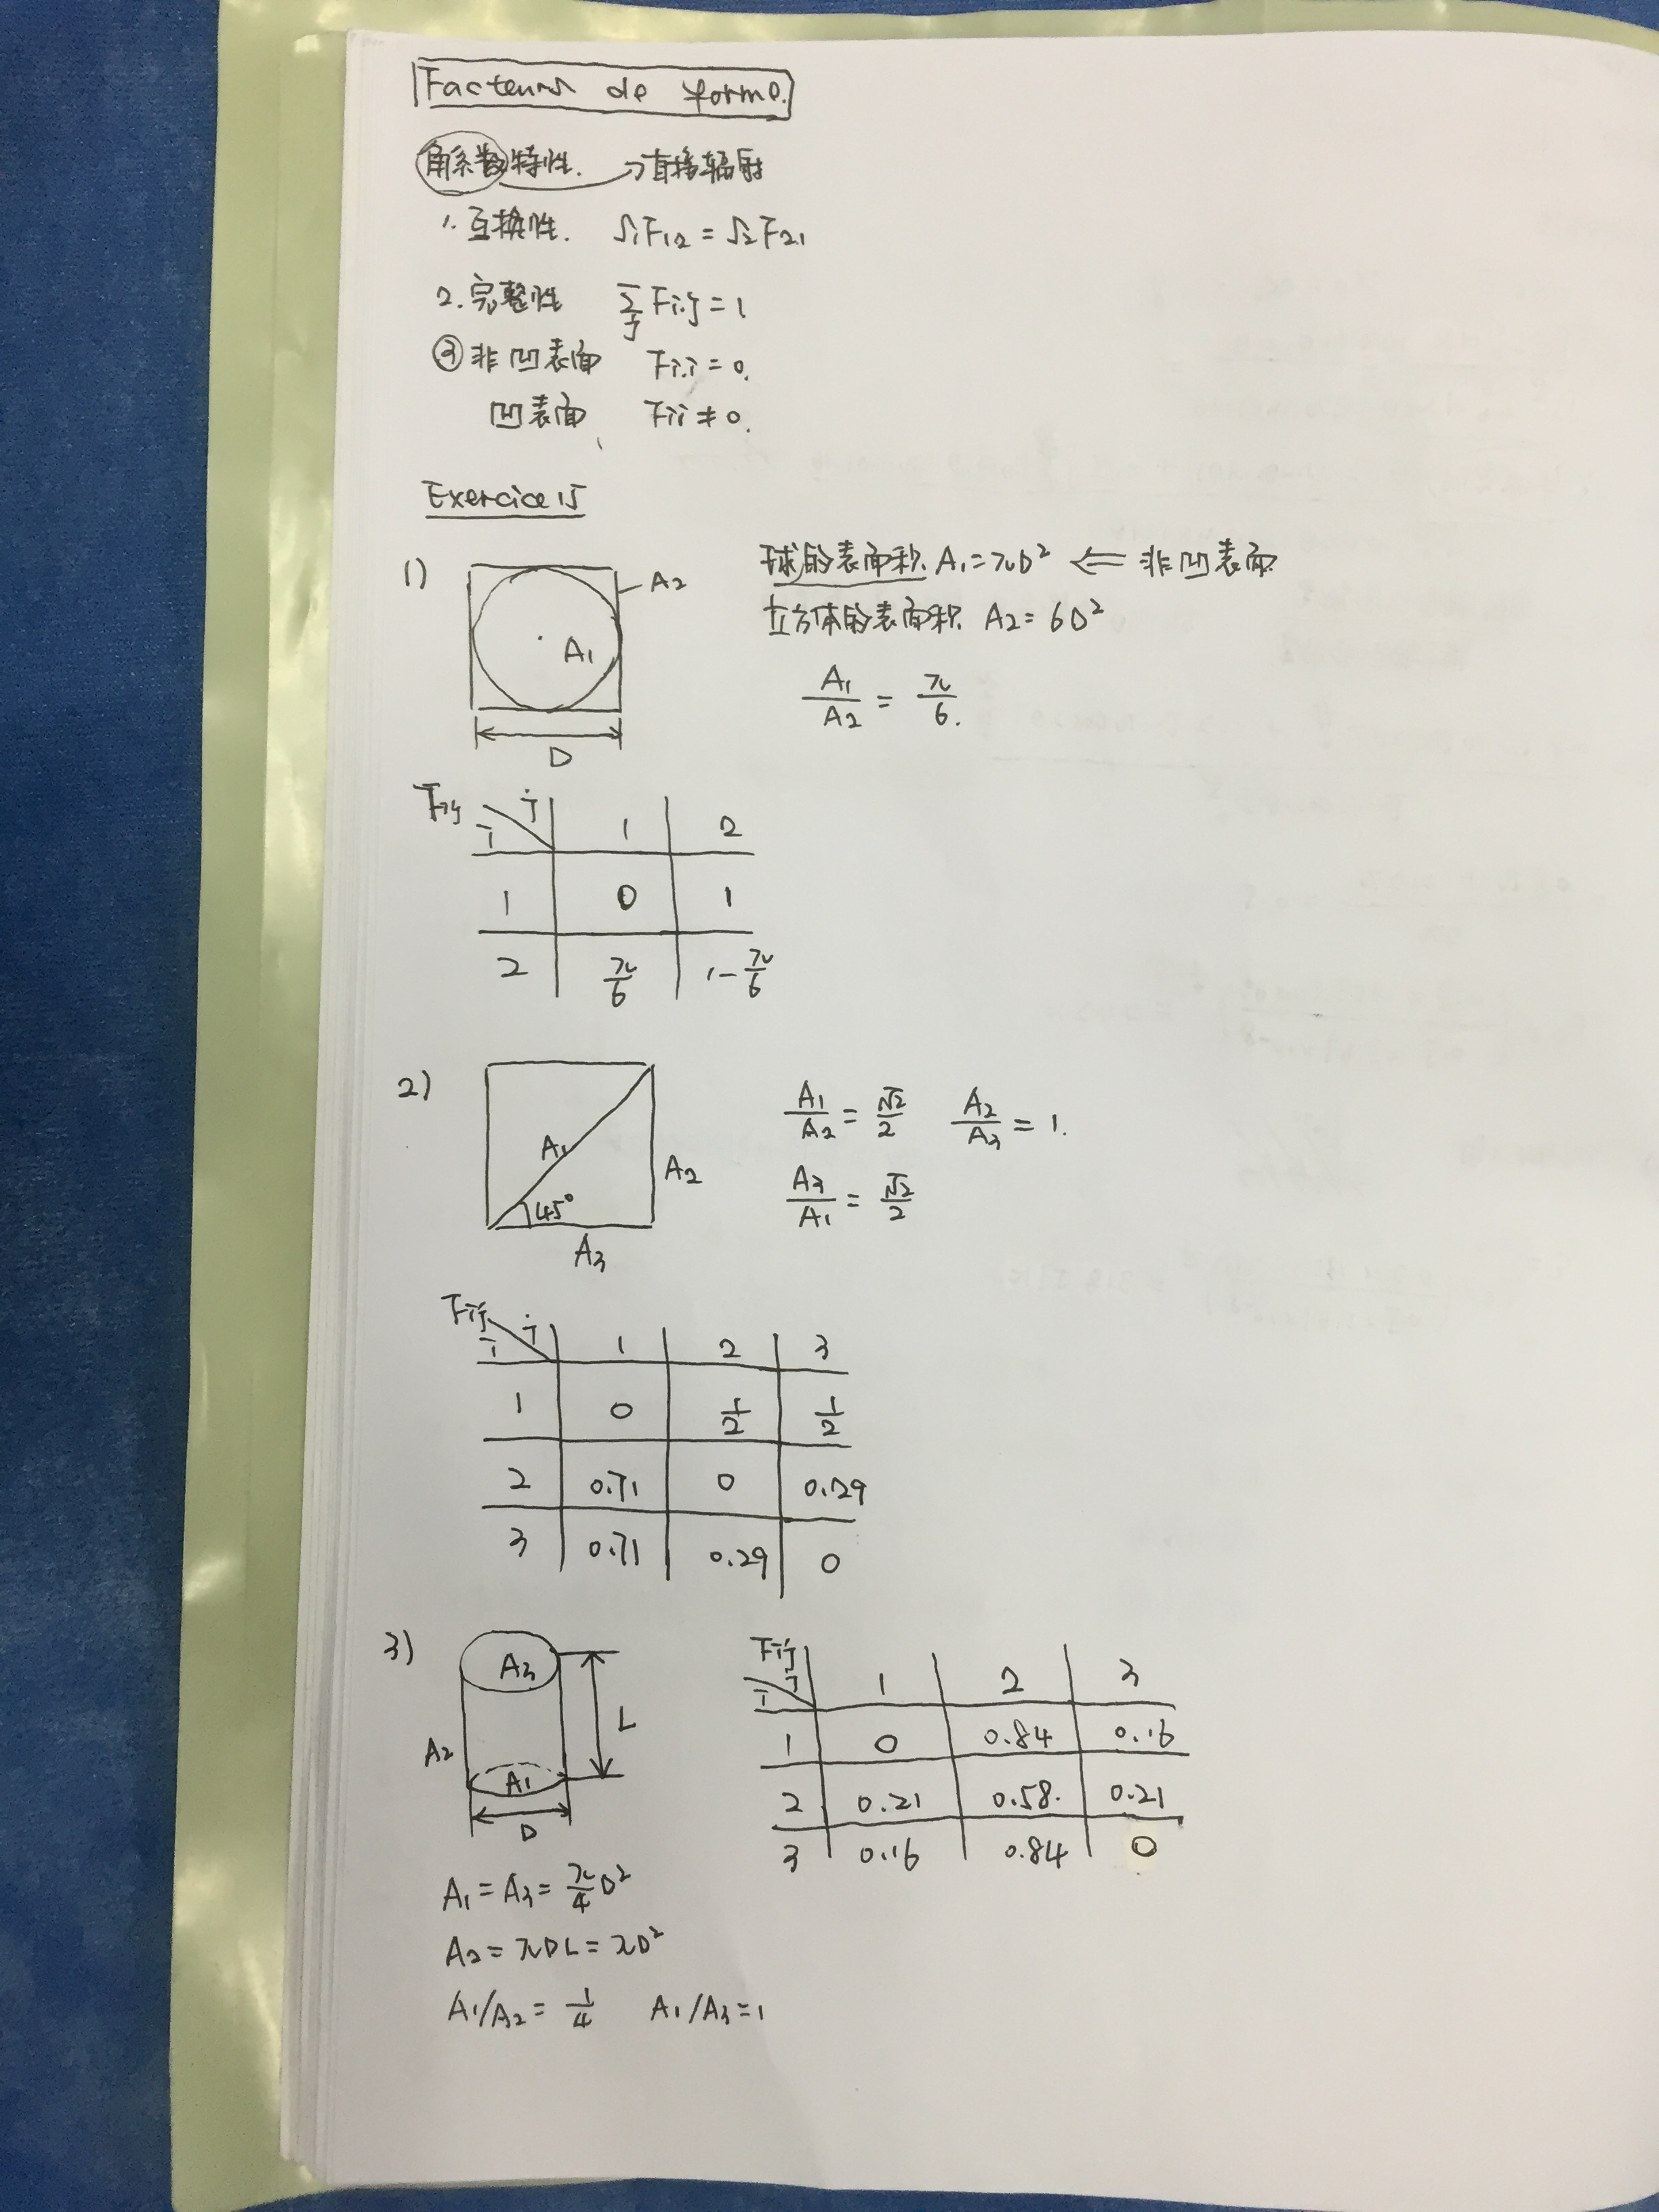 Facteurs de forme.
角系数特性. → 直接辐射
1. 互换性. S₁F₁₂ = S₂F₂₁
2. 完整性 ∑j Fi,j = 1
③ 非凹表面 Fi,i = 0.
凹表面 Fii ≠ 0.
Exercice 15
1) A₂ A₁ D
球的表面积. A₁ = πD² ⇐ 非凹表面
立方体的表面积 A₂ = 6D²
A₁/A₂ = π/6.
Fij i j 1 2
1 0 1
2 π/6 1-π/6
2) A₁ A₂ 45° A₃
A₁/A₂ = √2/2 A₂/A₃ = 1.
A₃/A₁ = √2/2
Fij i j 1 2 3
1 0 1/2 1/2
2 0.71 0 0.29
3 0.71 0.29 0
3) A₃ L A₂ A₁ D
Fij i j 1 2 3
1 0 0.84 0.16
2 0.21 0.58. 0.21
3 0.16 0.84 0
A₁ = A₃ = π/4 D²
A₂ = πDL = πD²
A₁/A₂ = 1/4 A₁/A₃ = 1